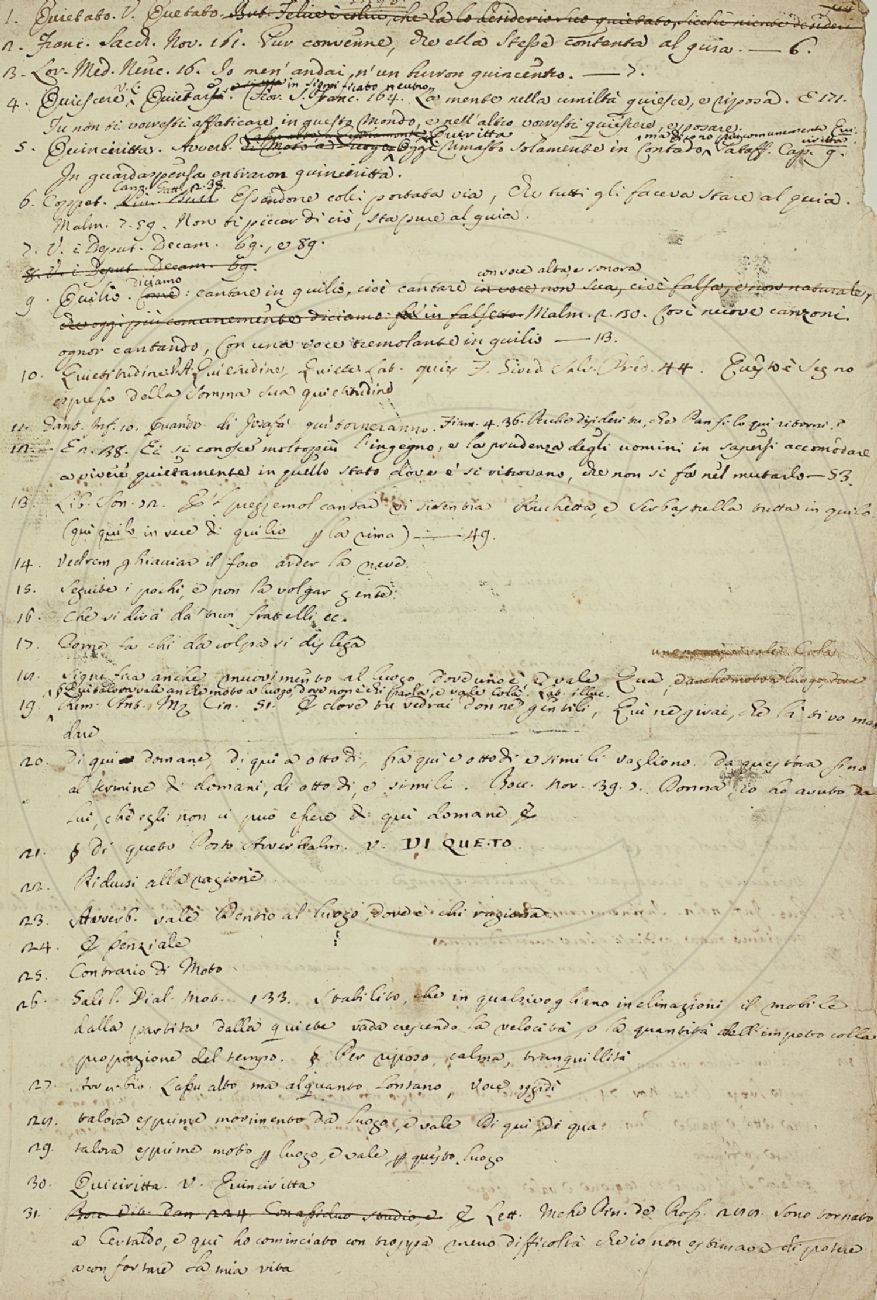 1. Quietato. V. Quetato. Aut. Felice è colui, che ha lo desiderio suo quietato, sicchè niente desideri
2. Franc. Sacch. Nov. 161. Pur convenne, che ella stesse contenta al quia. — 6.
3. Lor. Med. Nenc. 16. Io men' andai, n'un burron quincentro. — 7.
in significato neutro
4. Quiescere V. e Quietarsi. Fior. S. Franc. 164. La mente nella umiltà quiesce, e riposa. E 171.
Tu non ti vorresti affaticare in questo Mondo, e nell'altro vorresti quiescere, e posare.
Quiritta
5. Quinciritta. Avverb. di Moto a luogo. Oggi rimasto solamente in Contado, Pataff. Cap. 9.
In guardaspensa entraron quinciritta.
Canz. Carn. 238.
6. Coppet. Essendone colei portata via, Che tutti gli faceva stare al quia.
Malm. 7. 59. Non ti piccar di ciò, sta pure al quia.
7. V. i Deput. Decam. 69., e 89.
8. V. i Deput. Decam. 69.
diciamo con voce alta, e sonora
9. Quilio. Come: cantare in quilio, cioè cantare in voce non sua, cioè falsa, e non naturale,
che oggi più comunemente diciamo in falsetto Malm. 2. 50. Così nuove canzoni
ognor cantando, Con una voce tremolante in quilio — 13.
10. Quietitudine. V. A. Quietudine, Quiete Lat. quies 44. Questo è segno
espresso della somma sua quietitudine
11. Dant. Inf. 10. Quando di Josafà qui torneranno. Fiam. 4. 36.
12. — E 2. 38. Ei si conosce molto più l'ingegno, e la prudenza degli uomini in sapersi accomodare
a vivere quietamente in quello stato dove e' si ritrovano, che non si fa nel mutarlo — 53.
13. Lib. Son. 72. cantar di sirentia Ruchetta, e Serbastrella tutta in quilo
(qui quilo in vece di quilio p la rima) — 49.
14. Vedrem ghiacciar il foco arder la neve.
15. Seguite i pochi, e non la volgar gente.
16. Che si dirà da' tuoi fratelli ec.
17. Come fa chi da colpa si dislega
18. Significa anche movimento al luogo, dov'uno è, e vale Qua,
Qui talora vale anche moto a luogo, dove non è chi parla, e vale Colà. Lat. illuc.
19. Rim. Ant. M. Cin. 51. E dove tu vedrai donne gentili, Qui ne girai, che là ti vo man
dare
20. Di qui a domane, di qui a otto dì, fra qui e otto dì e simili vagliono. Da quest'ora fino
al termine di domani, di otto dì, e simili. Bocc. Nov. 39. 7. Donna, io ho avuto da
lui, che egli non ci può essere di qui domane
21. Di queto Posto Avverbialm. V. DI QUETO
22. Ridursi alla ragione
23. Avverb. vale Dentro al luogo, dove è chi ragiona
24.
25. Contrario di Moto
26. Galil. Dial. Mot. 133. Stabilito, che in qualsivogliano inclinazioni il mobile
dalla partita dalla quiete vada crescendo la velocità, o la quantità dell'impeto colla
proporzione del tempo. Per riposo, calma, tranquillità
27. Avverbio. Lassù alto ma alquanto lontano,
28. talora esprime movimento da luogo, e vale Di qui, di qua
29. talora esprime moto p luogo, e vale p questo luogo
30. Quiciritta. V. Quinciritta
31. Bocc. Lett. Mess. Pin. de Ross. Sono tornato
a Certaldo, e qui ho cominciato con troppa meno difficoltà che io non estimava di potere
a confortare la mia vita